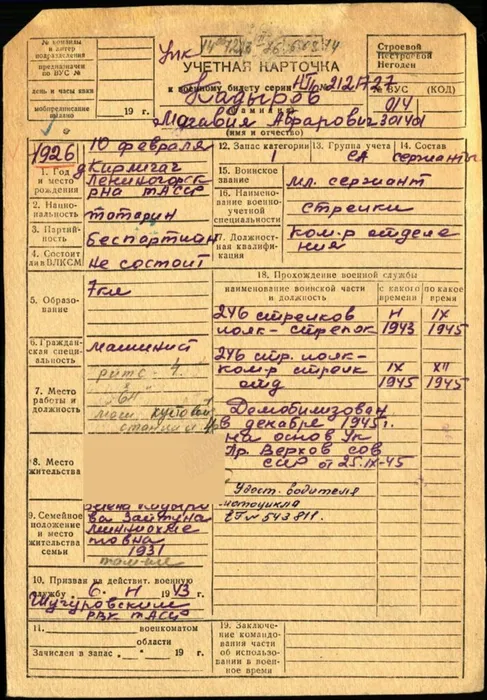 № команды
и литер
подразделения
предназначен
по ВУС №
день и часы явки
мобпредписание
выдано
19 г.
УЧЕТНАЯ КАРТОЧКА
к военному билету серии НП № 2121727
Строевой
Нестроевой
Негоден
№ ВУС
(КОД)
Кадыров
(фамилия)
014
Магавия Абрарович 301401
(имя и отчество)
1926
10 февраля
1. Год
и место
рождения
Лениногорск
р-на ТАССР
2. Нацио-
нальность
татарин
3. Партий-
ность
беспартиан
4. Состоит
ли в ВЛКСМ
не состоит
5. Образо-
вание
7 кл
6. Граждан-
ская специ-
альность
машинист
7. Место
работы и
должность
8. Место
жительства
9. Семейное
положение
и место
жительства
семьи
1931
10. Призван на действит. военную
службу 6. XI 1943
Шугуровским
РВК ТАССР
11. военкоматом
области
Зачислен в запас " " 19 г.
12. Запас категории
1
13. Группа учета
СА
14. Состав
сержанты
15. Воинское
звание
мл. сержант
16. Наименование
военно-
учетной
специальности
стрелки
17. Должностная
квалификация
ком-р отделе
ния
18. Прохождение военной службы
наименование воинской части
и должность
с какого
времени
по какое
время
246 стрелков
полк - стрелок
XI
1943
IX
1945
246 стр. полк -
ком-р стрелк
отд
IX
1945
XII
1945
Демобилизован
в декабре 1945 г.
на основ Ук
Пр. Верхов сов
ССР от 25.IX-45
Удост. водителя
мотоцикла
№ 543811.
19. Заключение
командования части
об использовании в военное время